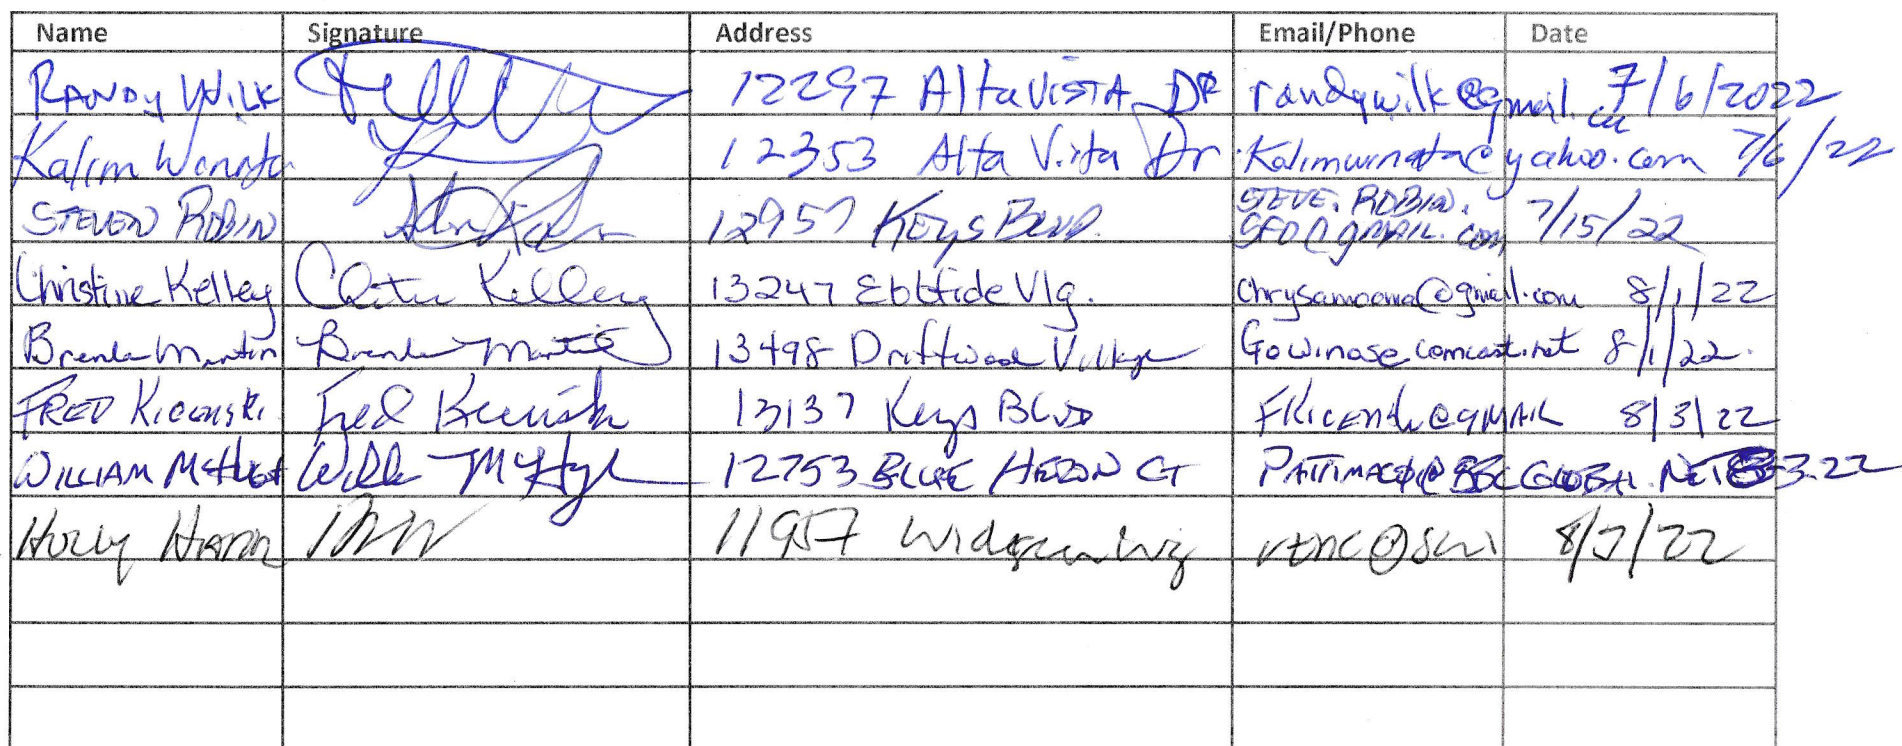 Name Signature Address Email/Phone Date
RANDY WILK 12297 Alta VISTA DR randywilk@gmail.com 7/6/2022
Kalim Winata 12353 Alta Vista Dr Kalimwinata@yahoo.com 7/6/22
STEVEN ROBIN 12957 KEYS BLVD. STEVE.ROBIN.
SFO@GMAIL.com 7/15/22
Christine Kelley Kelley 13247 Ebbtide Vlg. chrysamooma@gmail.com 8/1/22
Brenda Martin Brenda Martin 13498 Driftwood Village comcast.net 8/1/22.
FRED Kicenski Fred Kicenski 13137 Keys BLVD @GMAIL 8/3/22
WILLIAM McHugh 12753 BLUE HERON CT 3.22
Holly 11957 8/3/22